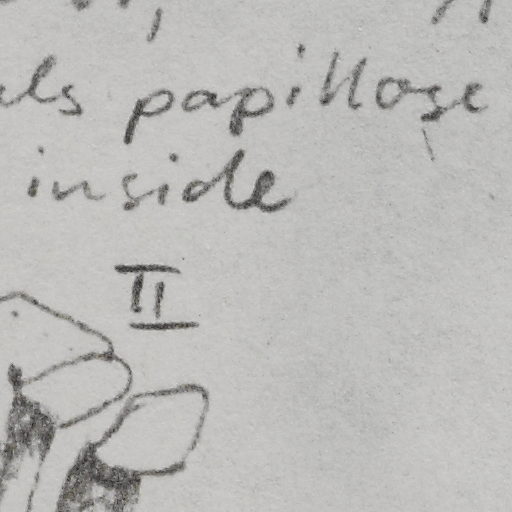 als papillose
inside
II